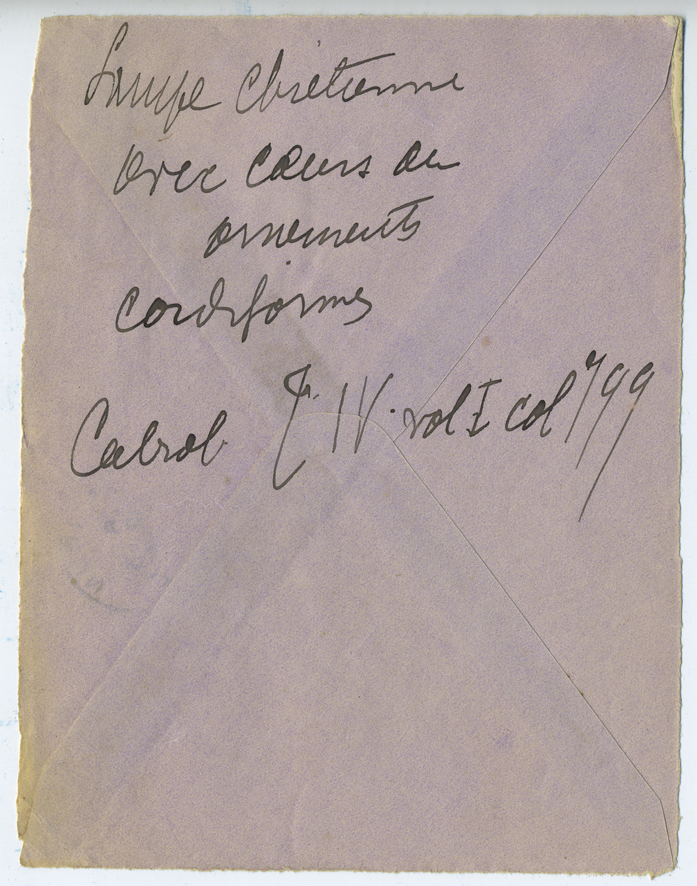 Lampe Chrétienne
avec cœurs ou
ornements
cordiformes
Cabrol T. IV. vol I col 799